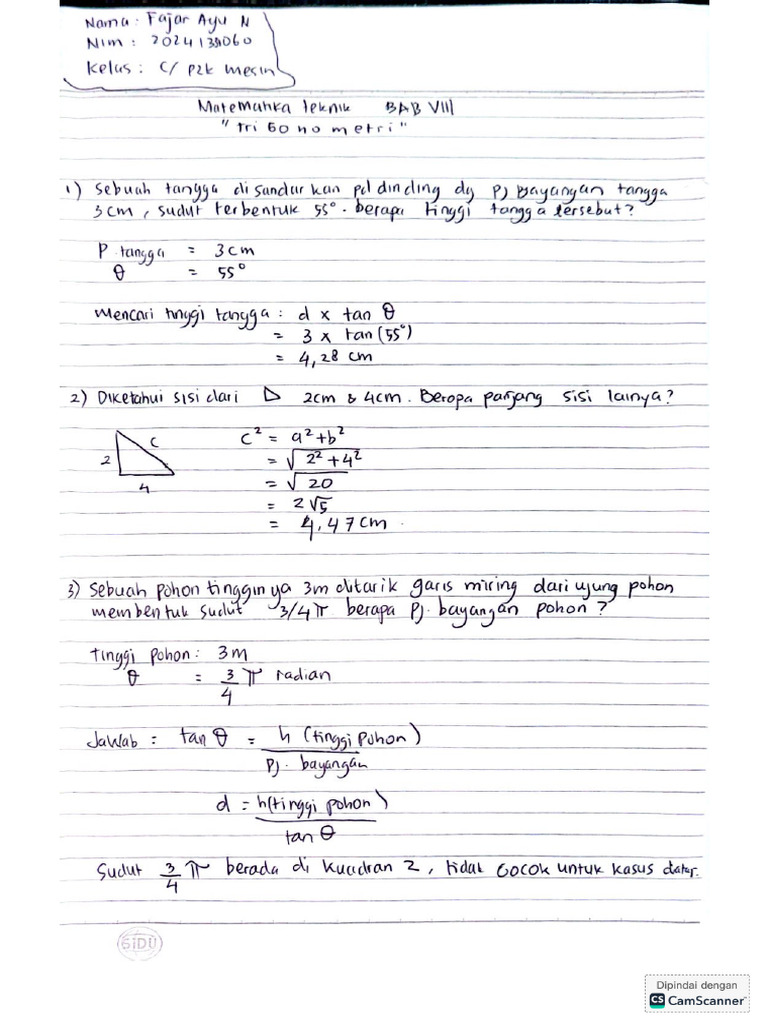 Nama : Fajar Ayu N
Nim : 2024139060
Kelas : C/ P2K mesin
Matematika Teknik BAB VIII
"Tri Gonometri"
1) Sebuah tangga di sandarkan pd dinding dg Pj Bayangan tangga
3cm, sudut terbentuk 55°. berapa tinggi tangga tersebut?
P tangga = 3 cm
θ = 55°
Mencari tinggi tangga : d x tan θ
= 3 x tan (55°)
= 4,28 cm
2) Diketahui sisi dari ▷ 2cm & 4cm. Berapa panjang sisi lainya?
c
2
4
c² = a²+b²
= √2²+4²
= √20
= 2√5
= 4,47cm.
3) Sebuah pohon tingginya 3m ditarik garis miring dari ujung pohon
membentuk sudut 3/4π berapa Pj. bayangan pohon ?
Tinggi pohon : 3m
θ = 3/4 π radian
Jawab = tan θ = h (tinggi pohon) / Pj. bayangan
d = h(tinggi pohon) / tan θ
Sudut 3/4 π berada di kuadran 2, tidak cocok untuk kasus datar.
SIDU
Dipindai dengan
CS CamScanner